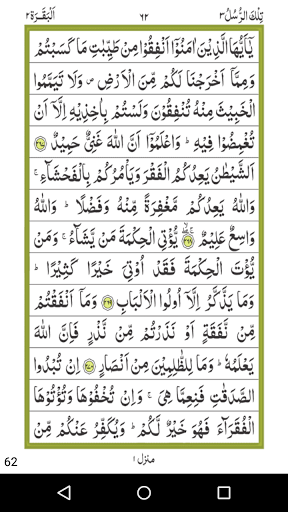 تِلْكَ الرُّسُلُ ٣ ٦٢ اَلْبَقَرَة ٢
يٰٓاَيُّهَا الَّذِيْنَ اٰمَنُوْٓا اَنْفِقُوْا مِنْ طَيِّبٰتِ مَا كَسَبْتُمْ
وَمِمَّآ اَخْرَجْنَا لَكُمْ مِّنَ الْاَرْضِ ۪ وَلَا تَيَمَّمُوا
الْخَبِيْثَ مِنْهُ تُنْفِقُوْنَ وَلَسْتُمْ بِاٰخِذِيْهِ اِلَّآ اَنْ
تُغْمِضُوْا فِيْهِ ؕ وَاعْلَمُوْٓا اَنَّ اللّٰهَ غَنِيٌّ حَمِيْدٌ ﴿۲۶۷﴾
اَلشَّيْطٰنُ يَعِدُكُمُ الْفَقْرَ وَيَاْمُرُكُمْ بِالْفَحْشَآءِ ۚ
وَاللّٰهُ يَعِدُكُمْ مَّغْفِرَةً مِّنْهُ وَفَضْلًا ؕ وَاللّٰهُ
وَاسِعٌ عَلِيْمٌ ﴿۲۶۸﴾ يُّؤْتِي الْحِكْمَةَ مَنْ يَّشَآءُ ۚ وَمَنْ
يُّؤْتَ الْحِكْمَةَ فَقَدْ اُوْتِيَ خَيْرًا كَثِيْرًا ؕ
وَمَا يَذَّكَّرُ اِلَّآ اُولُوا الْاَلْبَابِ ﴿۲۶۹﴾ وَمَآ اَنْفَقْتُمْ
مِّنْ نَّفَقَةٍ اَوْ نَذَرْتُمْ مِّنْ نَّذْرٍ فَاِنَّ اللّٰهَ
يَعْلَمُهٗ ؕ وَمَا لِلظّٰلِمِيْنَ مِنْ اَنْصَارٍ ﴿۲۷۰﴾ اِنْ تُبْدُوا
الصَّدَقٰتِ فَنِعِمَّا هِيَ ۚ وَاِنْ تُخْفُوْهَا وَتُؤْتُوْهَا
الْفُقَرَآءَ فَهُوَ خَيْرٌ لَّكُمْ ؕ وَيُكَفِّرُ عَنْكُمْ مِّنْ
منزل ١
62